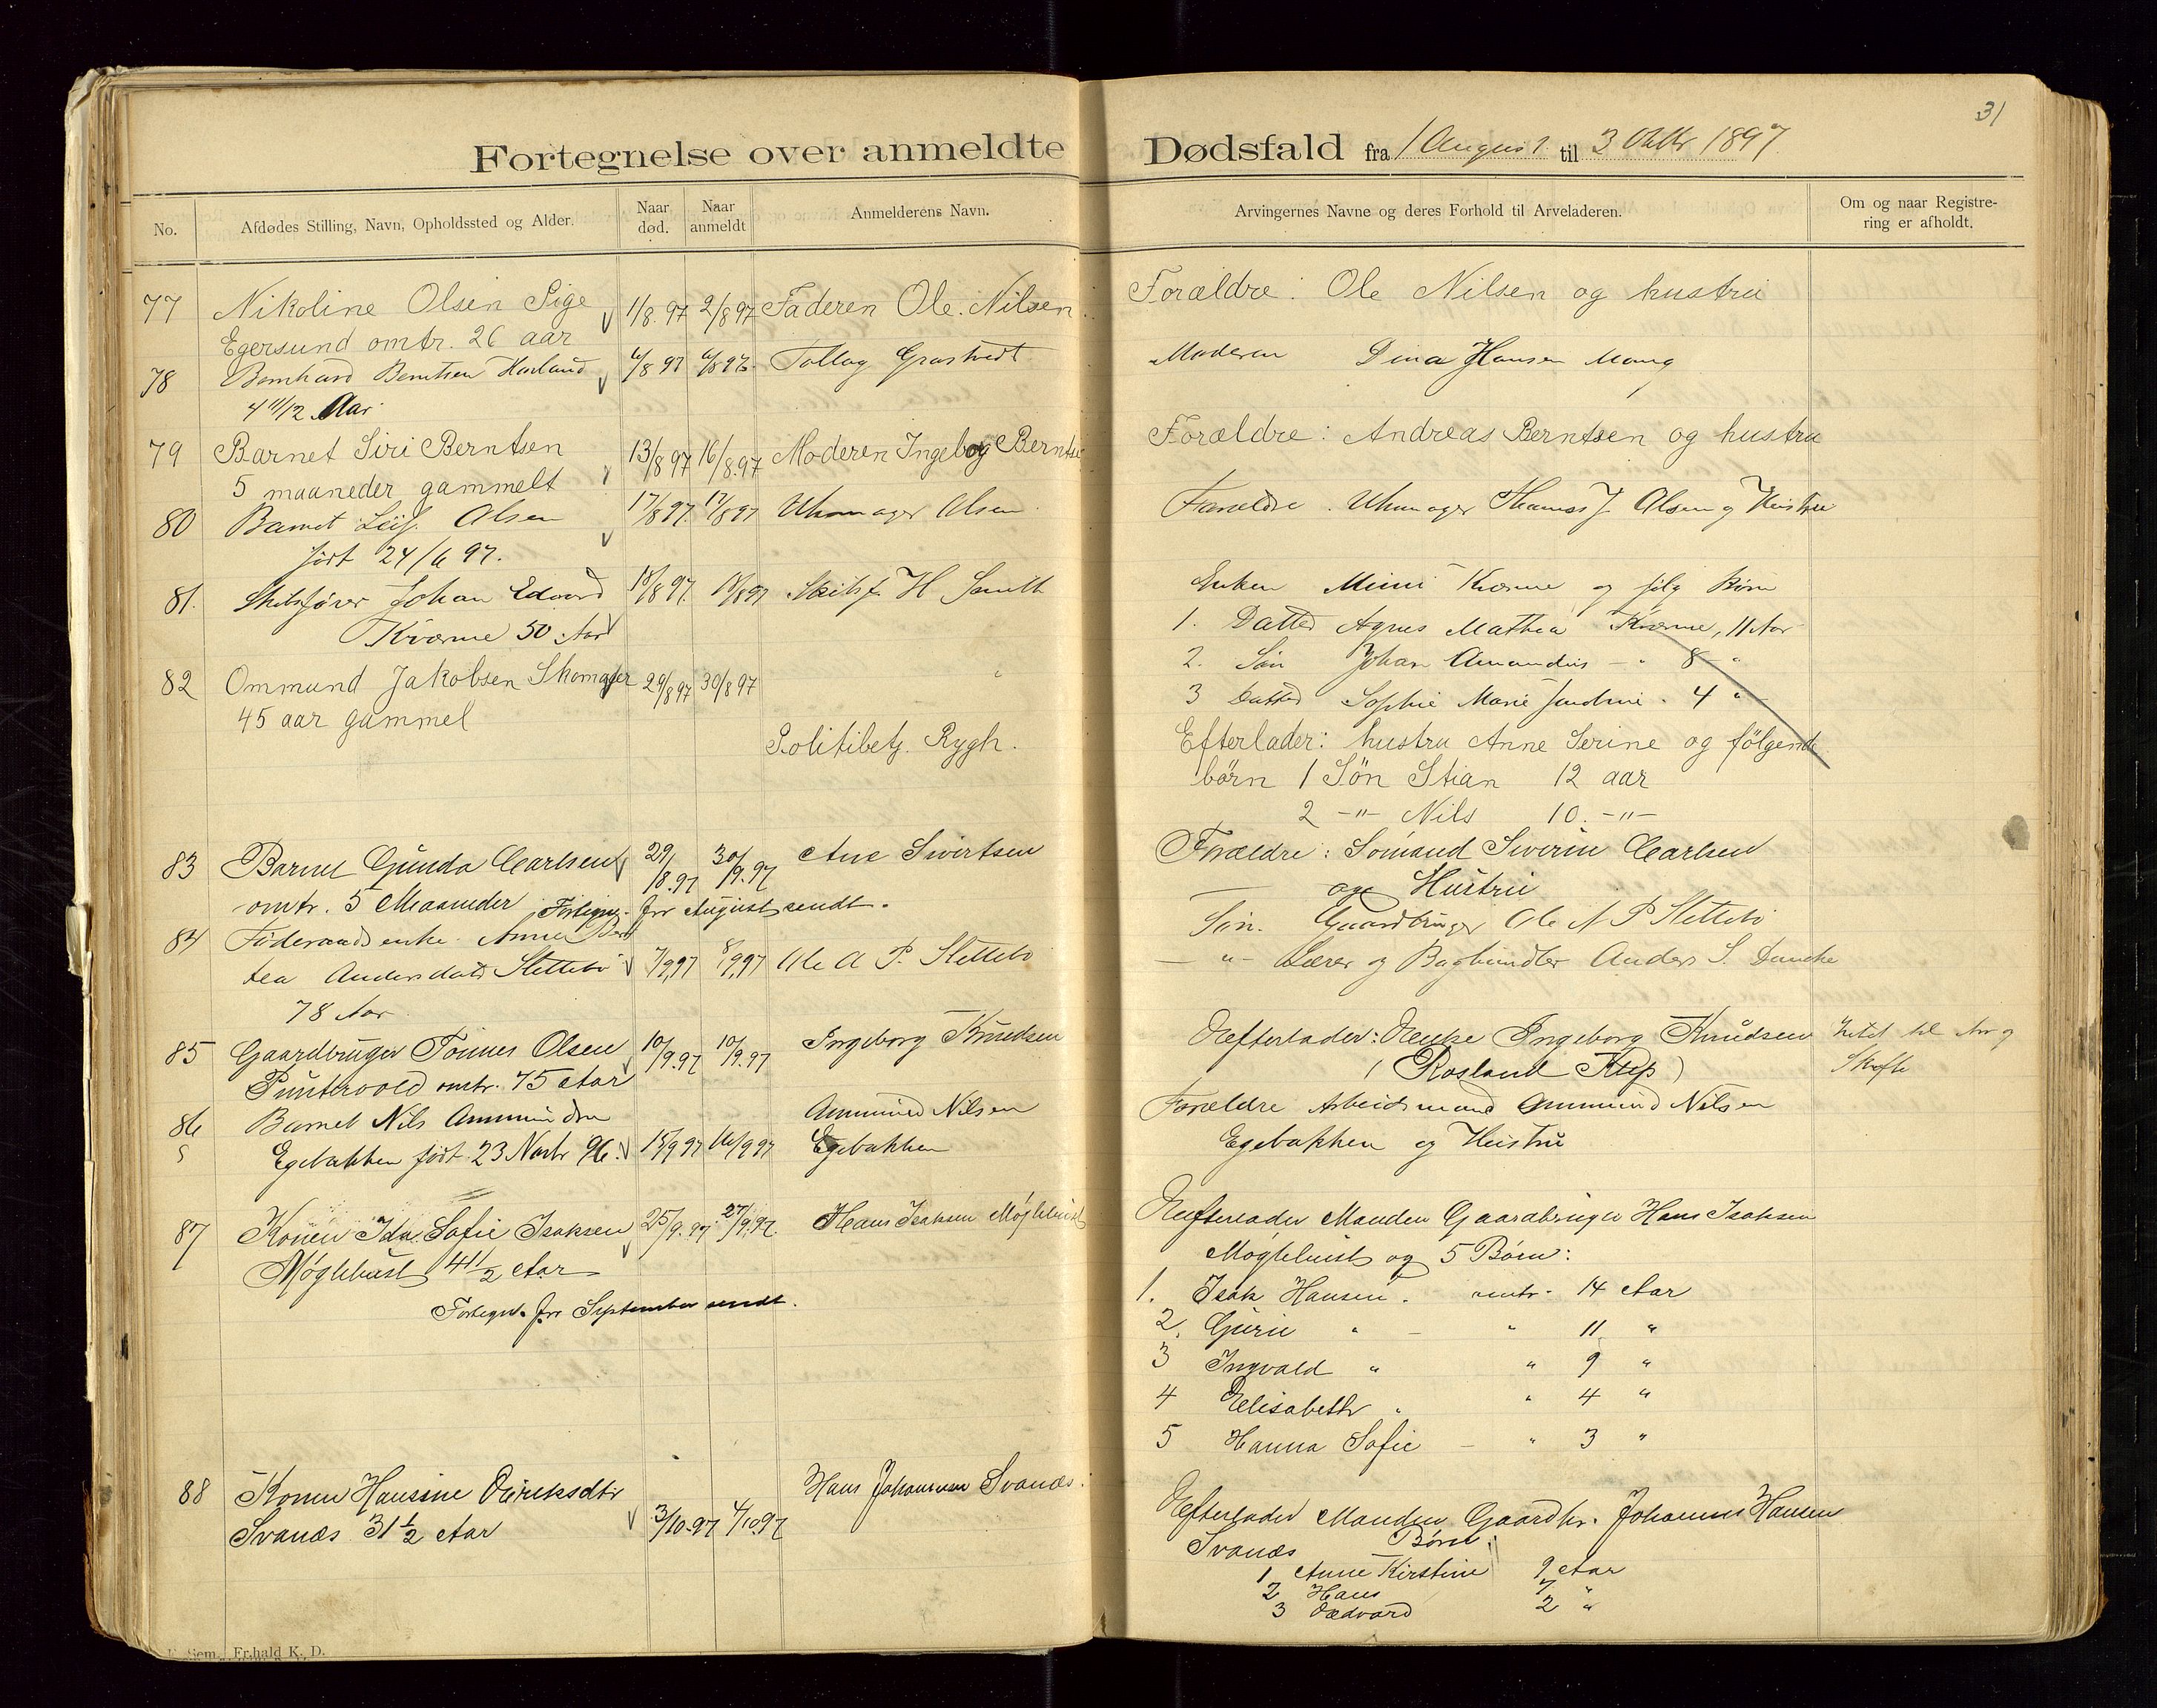 31
Fortegnelse over anmeldte Dødsfald fra 1 August til 3 Oktbr 1897
No.
Afdødes Stilling, Navn, Opholdssted og Alder.
Naar død.
Naar anmeldt
Anmelderens Navn.
Arvingernes Navne og deres Forhold til Arveladeren.
Om og naar Registrering er afholdt.
77 Nikoline Olsen Pige 1/8.97 2/8 97 Faderen Ole. Nilsen Forældre: Ole Nilsen og hustru
Egersund omtr. 26 aar
78 Bernhard Berntsen Havland 6/8 97 6/8 97. Tollag Grastvedt Moderen Dina Hansen Mong
4 11/12 Aar
79 Barnet Siri Berntsen 13/8 97 16/8.97 Moderen Ingeborg Berntse Forældre: Andreas Berntsen og hustru
5 maaneder gammelt
80 Barnet Leif Olsen 17/8 97. 17/8 97 Uhrmager Olsen Forældre. Uhrmager Thomas J. Olsen og Hustru
født 24/6 97.
81. Skibsfører Johan Edvard 18/8 97. 18/8 97 Skibsf H Smith Enken Mimi Kverme og følg Børn
Kværme 50 Aar
1. Datter Agnes Mathea Kværme, 11 Aar
2. Søn Johan Amandus - " 8 "
3 Datter Sophie Marie - 4 "
82 Ommund Jakobsen Skomager 29/8 97 30/8 97
45 aar gammel
Politibetj. Rygh. Efterlader: hustru Anne Serine og følgende
børn 1 Søn Stian 12 aar
2 -"- Nils 10. -"-
83 Barnet Gunda Carlsen 29/8.97 30/9.97 Ane Sivertsen Forældre: Sømand Severin Carlsen
og Hustru
omtr. 5 Maaneder
Fortegn. for August sendt.
84 Føderaadsenke. Anne Ber
tea Andersdatter Slettebø 7/9,97 8/9,97 Ole A P. Slettebø
78 Aar
Søn. Gaardbruger Ole A P Slettebø
- " - Lærer og Boghandler Anders S.
85 Gaardbruger Tønnes Olsen 10/9.97 10/9.97 Ingeborg Knudsen Efterlader: Enke Ingeborg Knudsen
Puntervold omtr. 75 Aar
(Rosland )
til Arv og
Skifte
86 Barnet Nils Ommundsen Ommund Nilsen Forældre Arbeidsmand Ommund Nilsen
Egebakken født 23 Novbr 96. 15/9 97 16/9 97 Egebakken Egebakken og Hustru
87 Konen Ida Sofie Isaksen 25/9.97 27/9,97. Hans Isaksen Møglehust Efterlader Manden Gaardbruger Hans Isaksen
Møglehust 41 1/2 Aar
Møglehust og 5 Børn:
Fortegn. for September sendt.
1. Isak Hansen. omtr. 14 Aar
2. Gurie " - " 11 "
3 Ingvald " " 9 "
4 Elisabeth " " 4 "
5 Hanna Sofie - " 3 "
88 Konen Hansine Didriksdtr Hans Johannesen Svanæs. Efterlader Manden Gaardbr. Johannes Hansen
Svanæs 31 1/2 Aar 3/10.97 4/10.97 Svanæs Børn:
1 Anne Kirstine 9 Aar
2 Hans 7 "
3 Edvard 2 "
Fr.hald K. D.